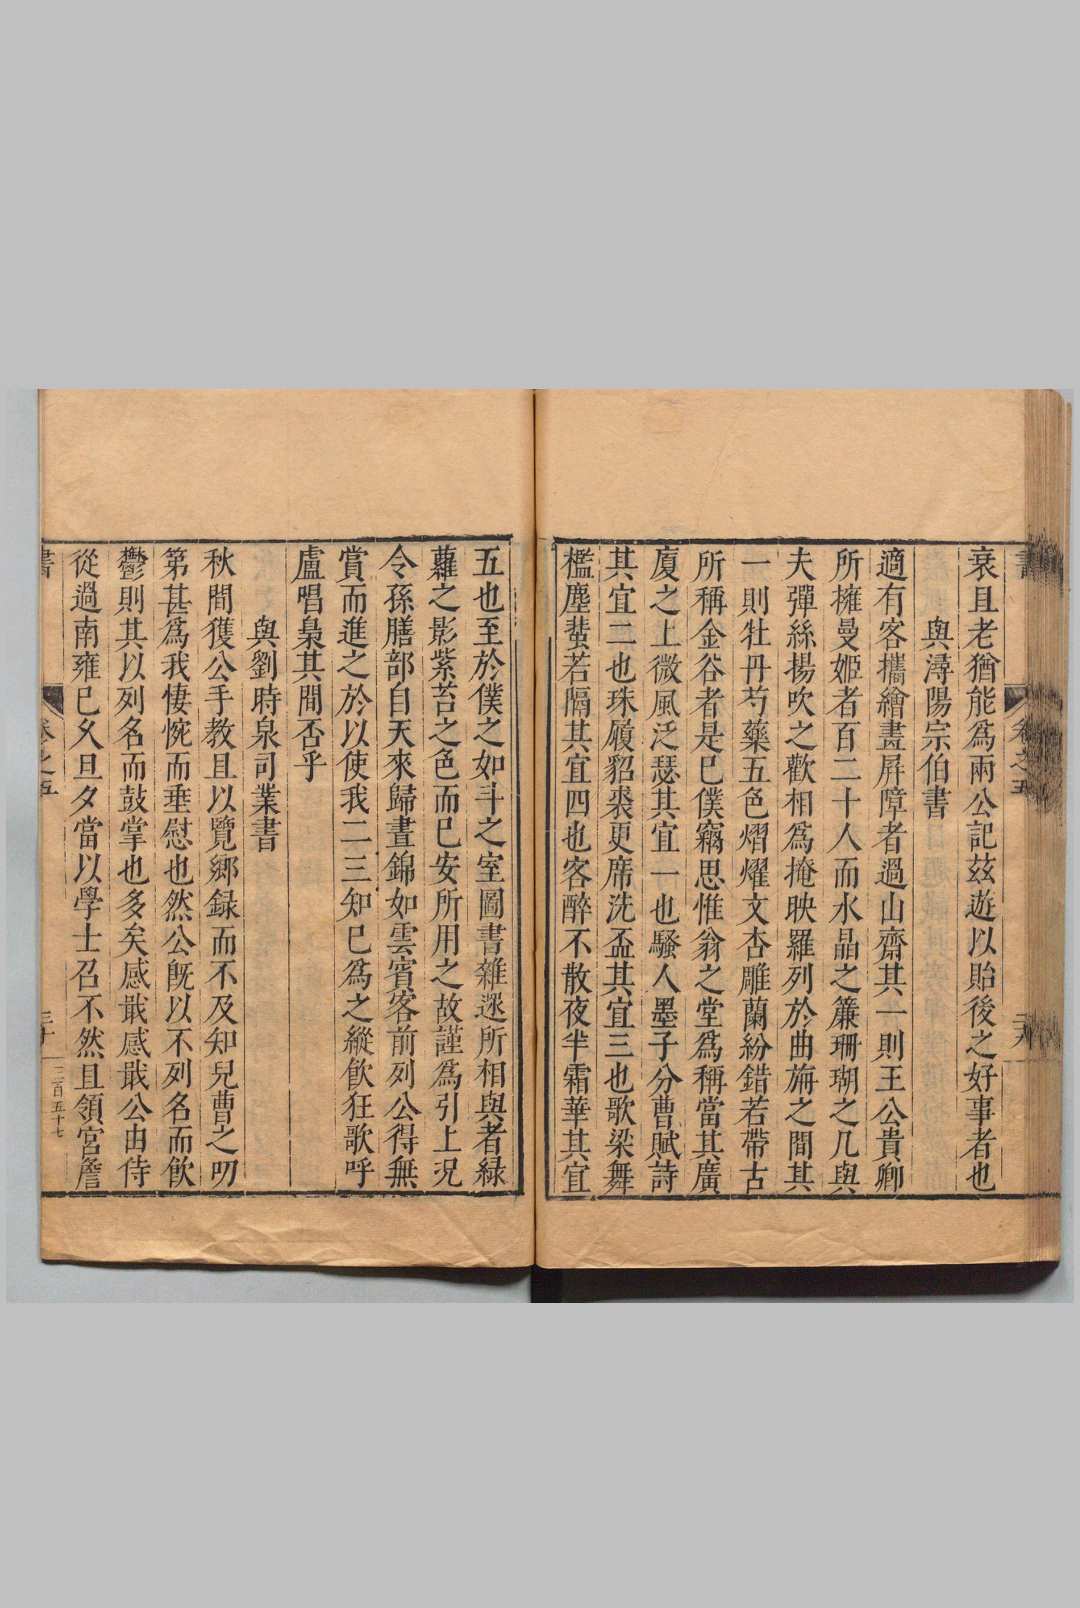 書
卷之五
衰且老猶能爲兩公記茲遊以貽後之好事者也
與潯陽宗伯書
適有客攜繪畫屏障者過山齋其一則王公貴卿
所擁曼姬者百二十人而水晶之簾珊瑚之几與
夫彈絲揚吹之歡相爲掩映羅列於曲旃之間其
一則牡丹芍藥五色熠燿文杏雕蘭紛錯若帶古
所稱金谷者是已僕竊思惟翁之堂爲稱當其廣
廈之上微風泛瑟其宜一也騷人墨子分曹賦詩
其宜二也珠履貂裘更席洗盃其宜三也歌梁舞
檻塵蜚若隔其宜四也客醉不散夜半霜華其宜
五也至於僕之如斗之室圖書雜遝所相與者綠
蘿之影紫苔之色而已安所用之故謹爲引上況
令孫膳部自天來歸晝錦如雲賓客前列公得無
賞而進之於以使我二三知已爲之縱飲狂歌呼
盧唱梟其間否乎
與劉時泉司業書
秋間獲公手教且以覽鄉録而不及知兒曹之叨
第甚爲我悽惋而垂慰也然公旣以不列名而飲
鬱則其以列名而鼓掌也多矣感戢感戢公由侍
從過南雍已久旦夕當以學士召不然且領宮詹
書
卷之五
三十
二百五十七